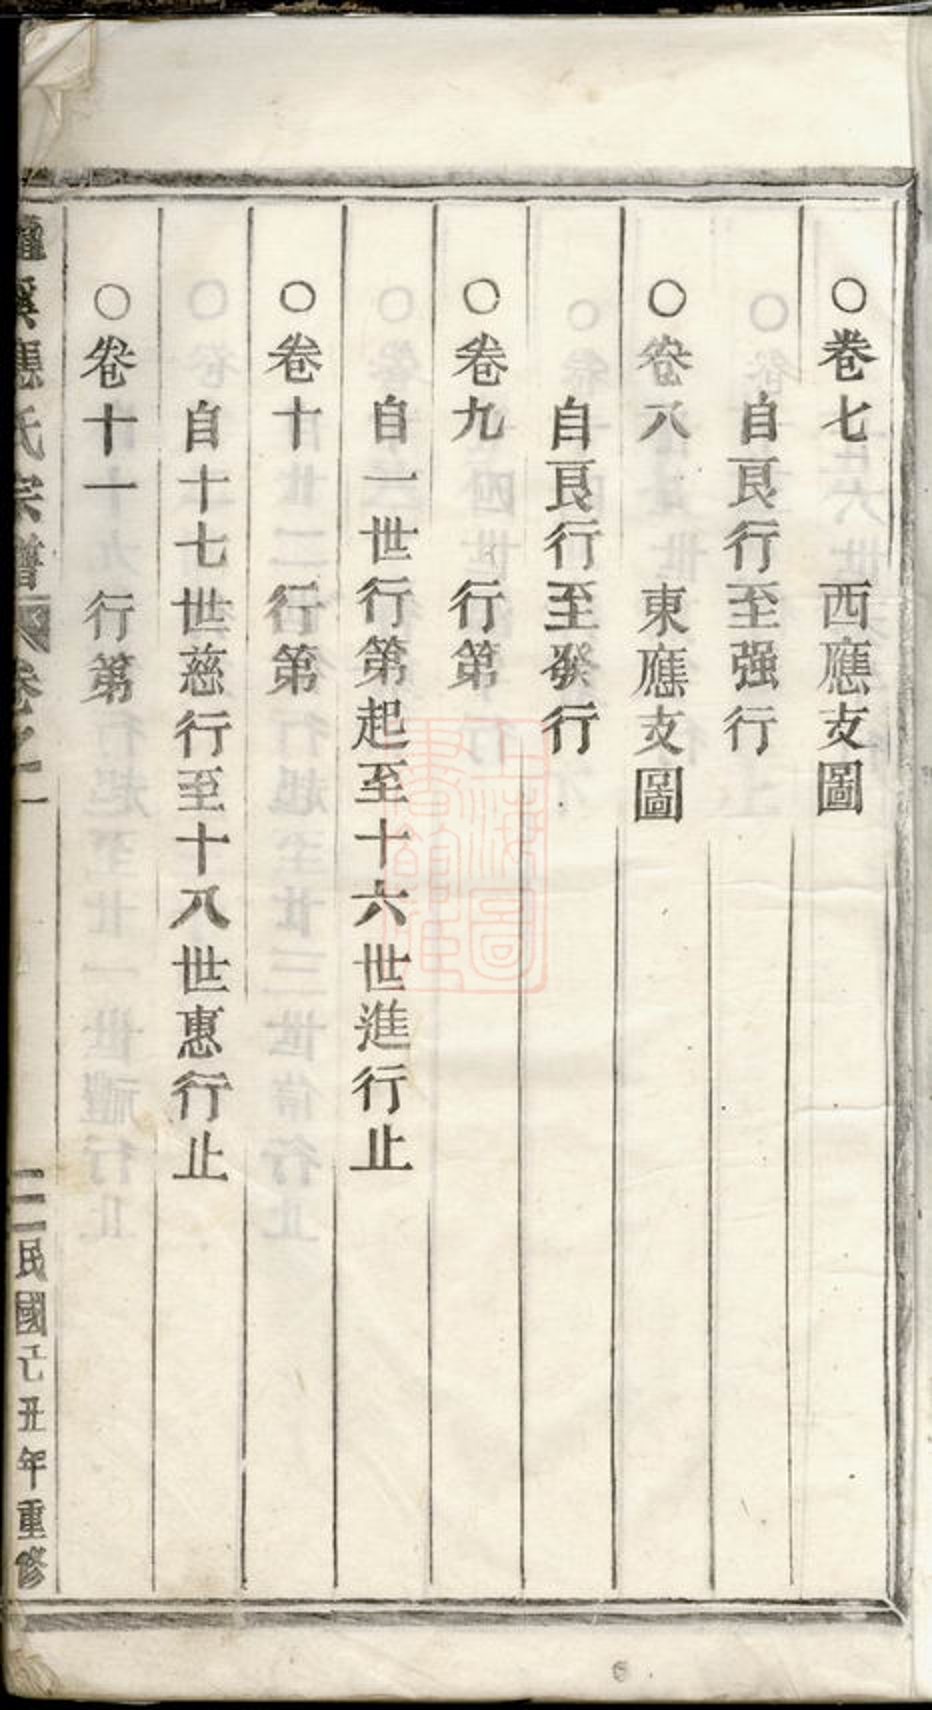 ○卷七　西應支圖
自良行至强行
○卷八　東應支圖
自良行至發行
○卷九　行第
自一世行第起至十六世進行止
○卷十　行第
自十七世慈行至十八世惠行止
○卷十一　行第
溪應氏宗譜　卷之一　二　民國己丑年重修